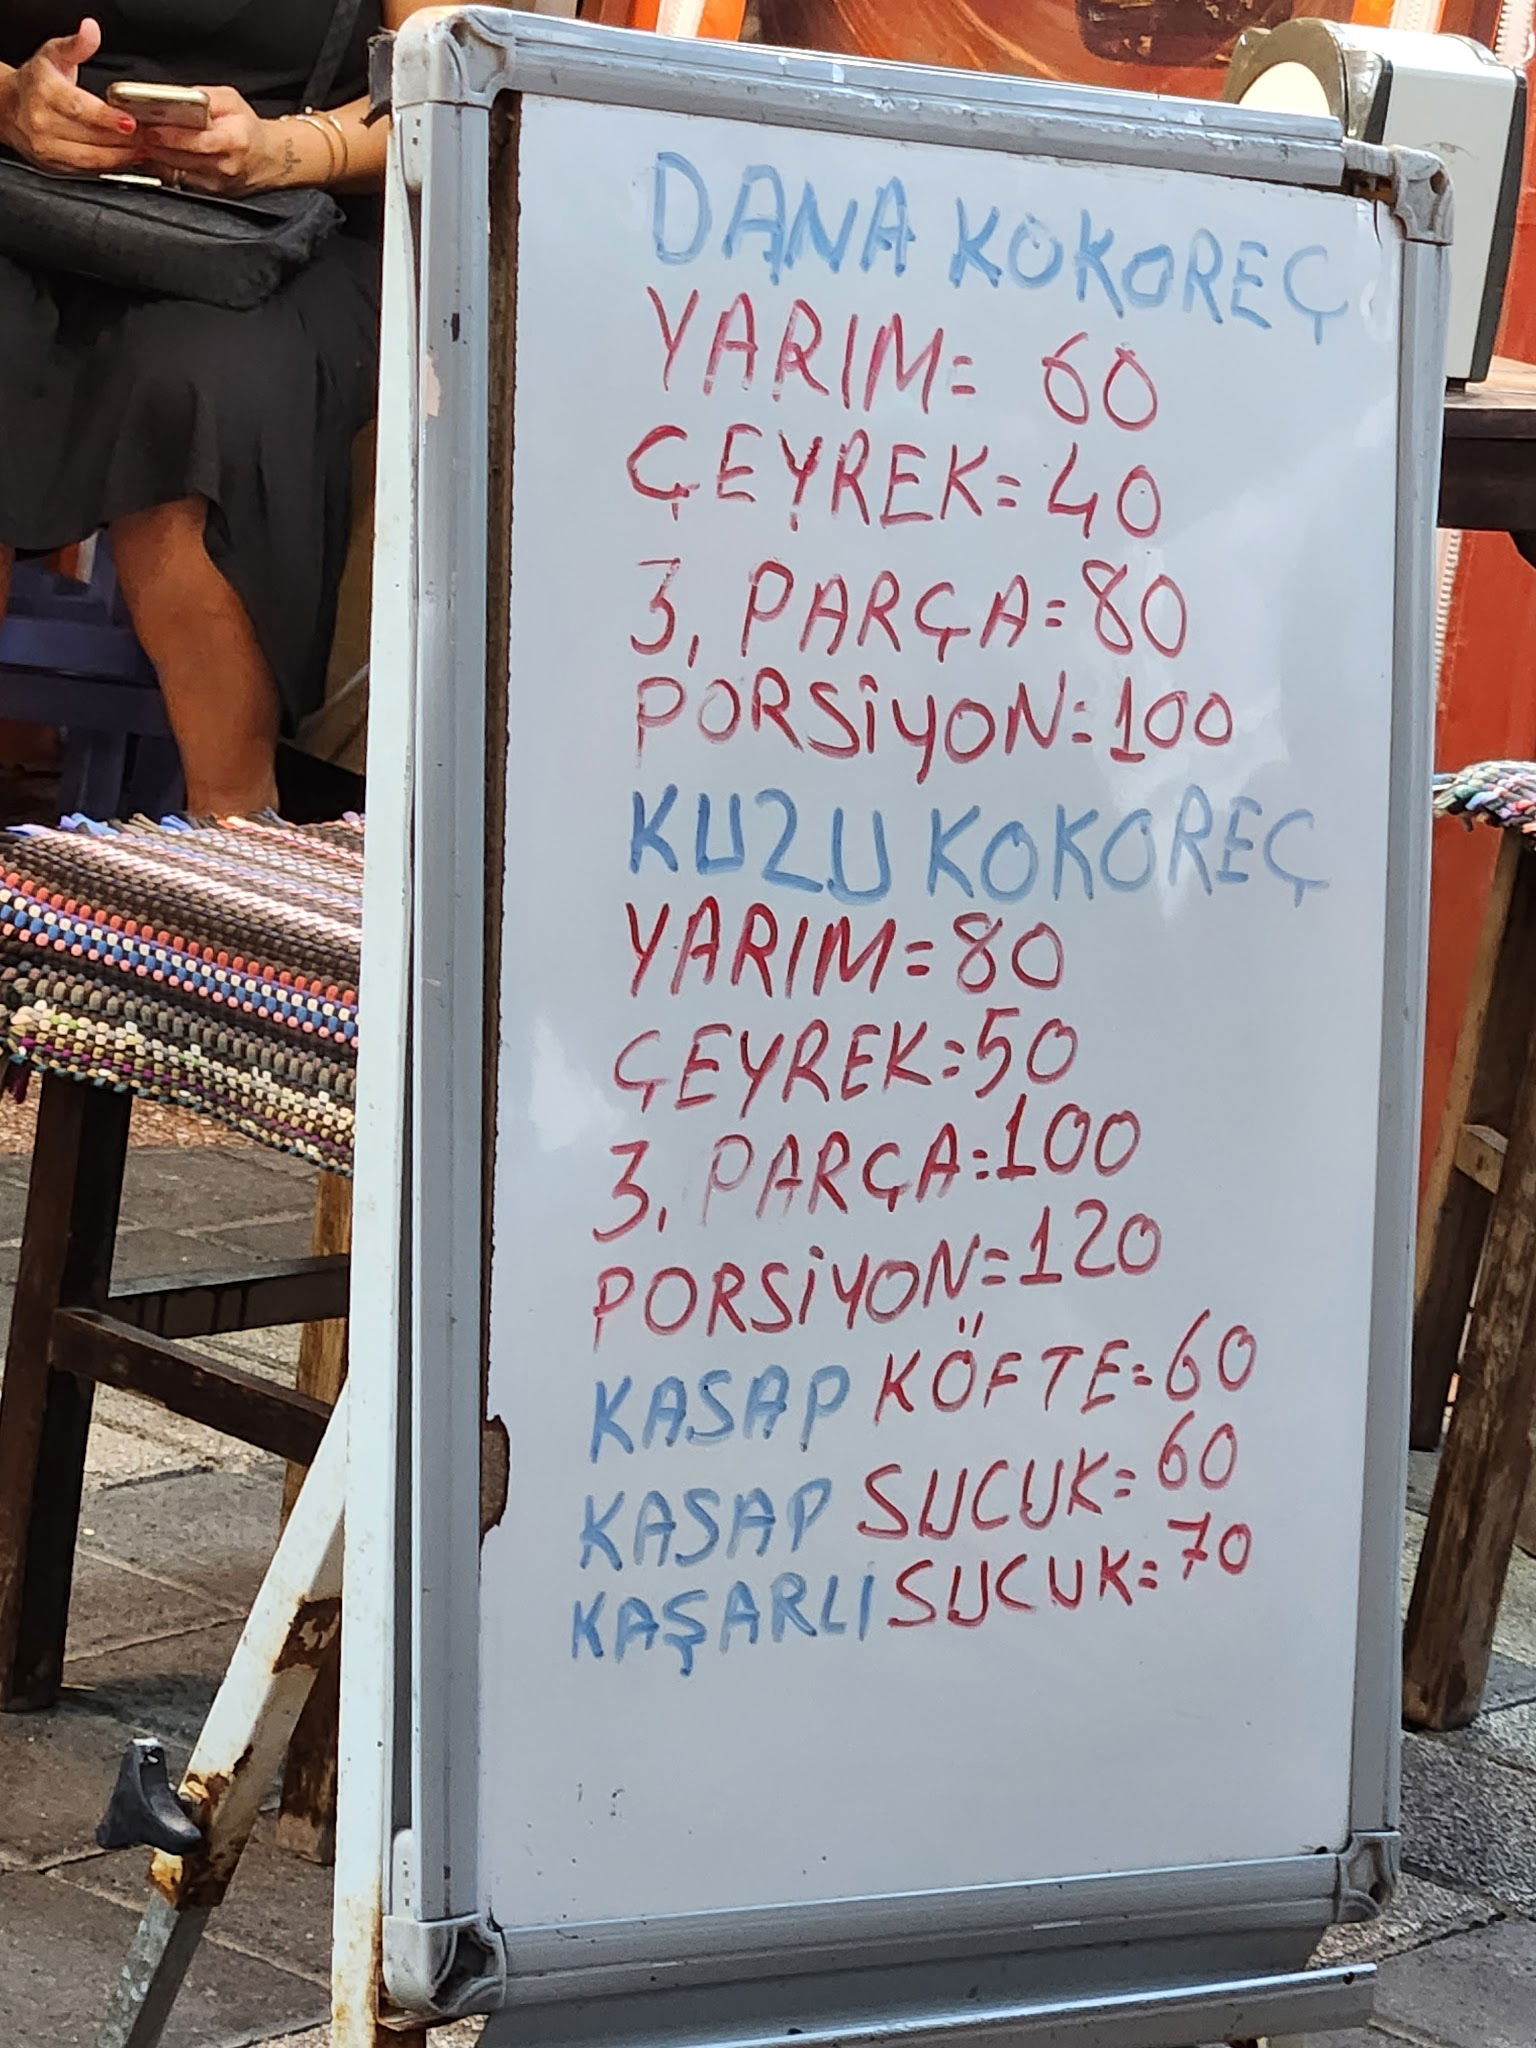 DANA KOKOREÇ
YARIM= 60
ÇEYREK= 40
3, PARÇA= 80
PORSİYON= 100
KUZU KOKOREÇ
YARIM= 80
ÇEYREK= 50
3, PARÇA= 100
PORSİYON= 120
KASAP KÖFTE= 60
KASAP SUCUK= 60
KAŞARLI SUCUK= 70